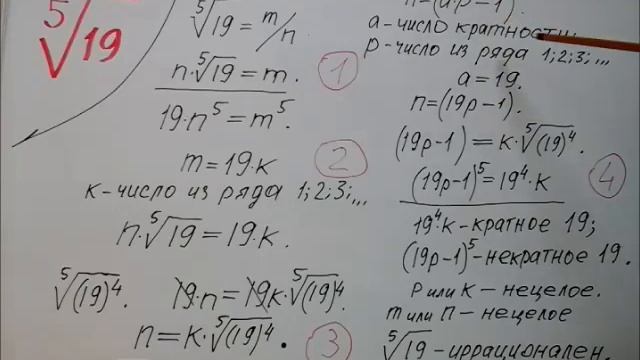 ⁵√19
⁵√19 = m/n
n·⁵√19 = m.
1
19·n⁵ = m⁵.
m = 19·k
2
k-число из ряда 1;2;3;,,,
n·⁵√19 = 19·k.
⁵√(19)⁴. 19·n = 19k·⁵√(19)⁴.
n = k·⁵√(19)⁴.
3
n=(a·p-1).
a-число кратности;
p-число из ряда 1;2;3;,,,
a=19.
n=(19p-1).
(19p-1)=k·⁵√(19)⁴.
(19p-1)⁵=19⁴·k
4
19⁴·k-кратное 19;
(19p-1)⁵-некратное 19.
p или k - нецелое.
m или n - нецелое
⁵√19-иррационален.